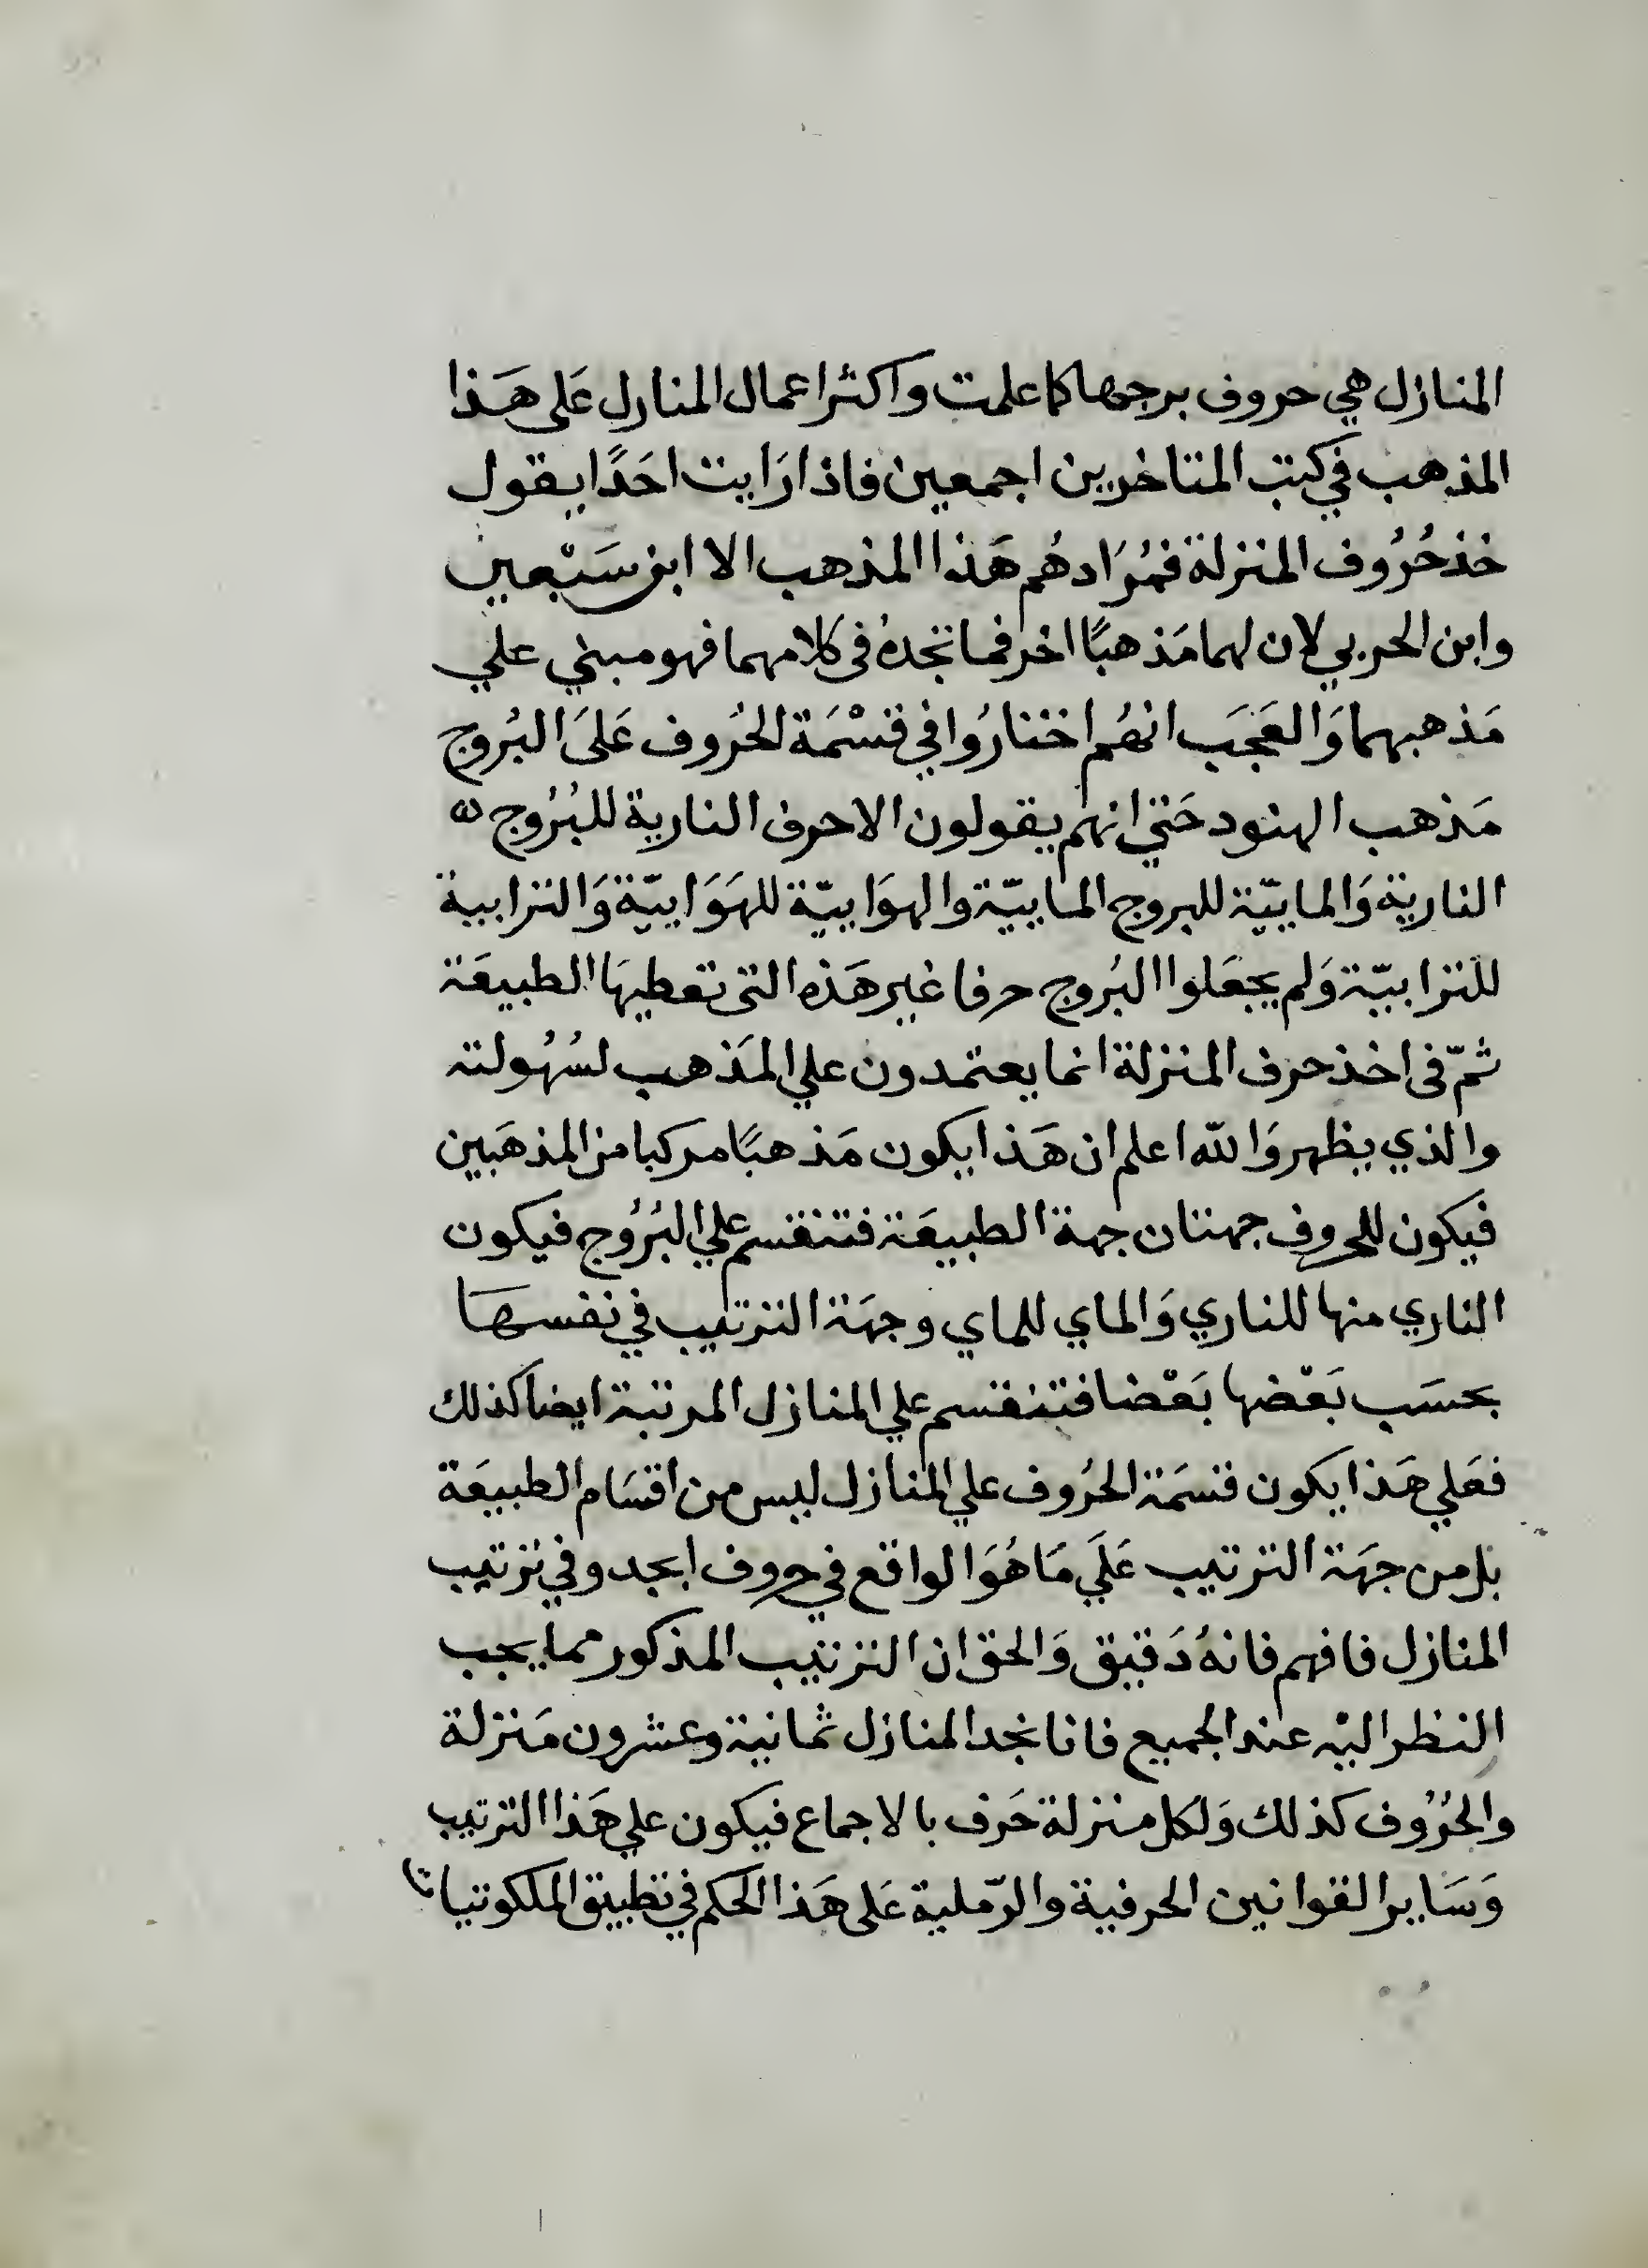 المنازل هي حروف برجها كما علمت واكثر اعمال المنازل عَلى هَذا
المذهب في كتب المتاخرين اجمعين فاذا رَايت احَدًا يقول
خذ حُرُوف المنزلة فمُرَادهُم هَذا المذهب الا ابن سَبْعين
وابن الحربي لان لهما مَذهبًا اخر فما تجدهُ في كلامهما فهو مبني علي
مَذهبهما وَالعَجَب انهُم اختارُوا في قسْمَة الحُروف عَلىَ البُروج
مَذهب الهنود حَتي انهم يقولون الاحرف النارية للبُرُوج
النارية وَالماييّة للبروج الماييّة والهوَاييّة للهَوَاييّة وَالترابية
للترابيّة وَلم يجعَلوا البُروج حرفا غير هَذه التي تعطيهَا الطبيعَة
ثمّ في اخذ حرف المنزلة انما يعتمدون علي المَذهب لسُهُولته
والذي يظهر وَالله اعلم ان هَذا يكون مَذهبًا مركبا من المذهَبين
فيكون للحروف جهتان جهة الطبيعَة فتنقسم علي البُرُوج فيكون
الناري منها للناري وَالماي للماي وجهَة الترتيب في نفسهَا
بحسَب بَعْضها بَعْضا فتنقسم علي المنازل المرتبة ايضا كذلك
فعَلي هَذا يكون قسمَة الحُروف علي المنازل ليس من اقسَام الطبيعَة
بل من جهَة الترتيب عَلَي مَا هُوَ الواقع في حروف ابجد وفي ترتيب
المنازل فافهم فانهُ دَقيق وَالحق ان الترتيب المذكور مما يجب
النظر اليْه عند الجميع فانا نجد المنازل ثمانية وعشرون مَنزلة
والحُرُوف كذلك وَلكل منزلة حَرف بالاجماع فيكون علي هَذا الترتيب
وَسَاير القوانين الحرفية والرّملية عَلى هَذا الحكم في تطبيق الملكوتيات